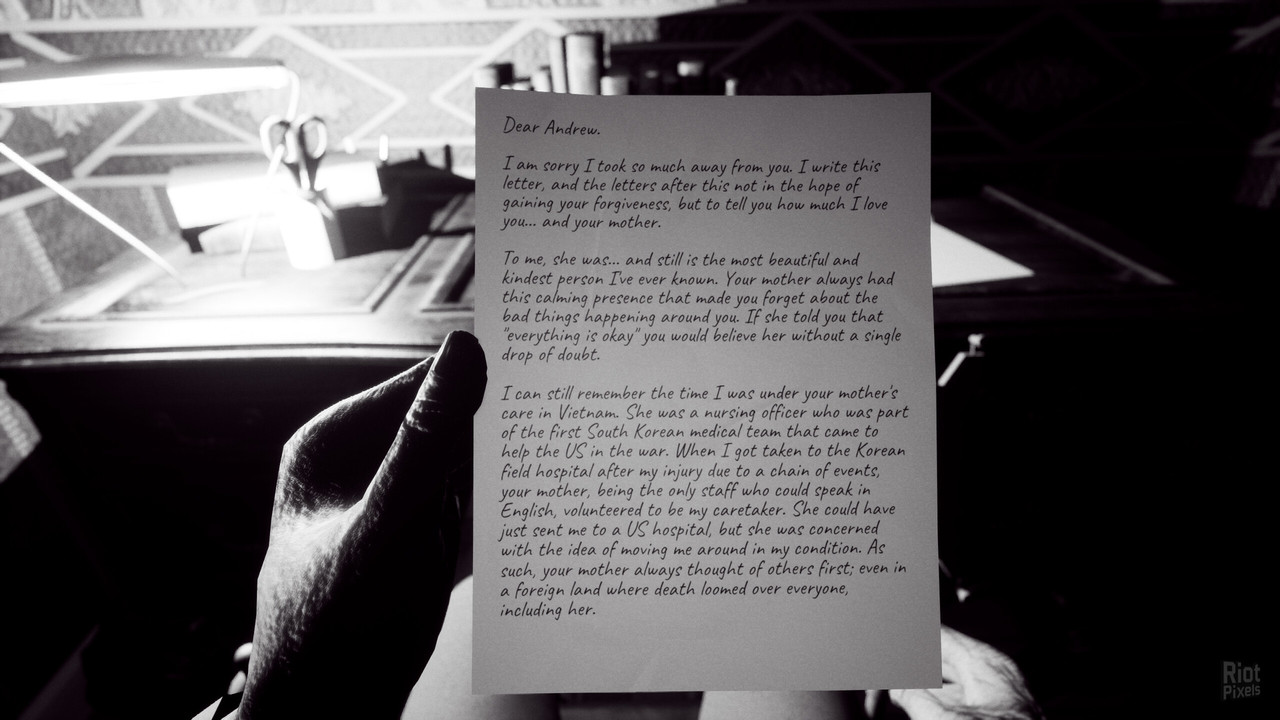 Dear Andrew.
I am sorry I took so much away from you. I write this
letter, and the letters after this not in the hope of
gaining your forgiveness, but to tell you how much I love
you... and your mother.
To me, she was... and still is the most beautiful and
kindest person I've ever known. Your mother always had
this calming presence that made you forget about the
bad things happening around you. If she told you that
"everything is okay" you would believe her without a single
drop of doubt.
I can still remember the time I was under your mother's
care in Vietnam. She was a nursing officer who was part
of the first South Korean medical team that came to
help the US in the war. When I got taken to the Korean
field hospital after my injury due to a chain of events,
your mother, being the only staff who could speak in
English, volunteered to be my caretaker. She could have
just sent me to a US hospital, but she was concerned
with the idea of moving me around in my condition. As
such, your mother always thought of others first; even in
a foreign land where death loomed over everyone,
including her.
Riot
Pixels